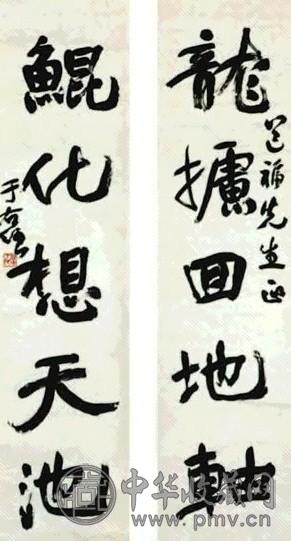 龍攄回地軸
福先生正
鯤化想天池
于右任
中华收藏网
www.pmv.cn